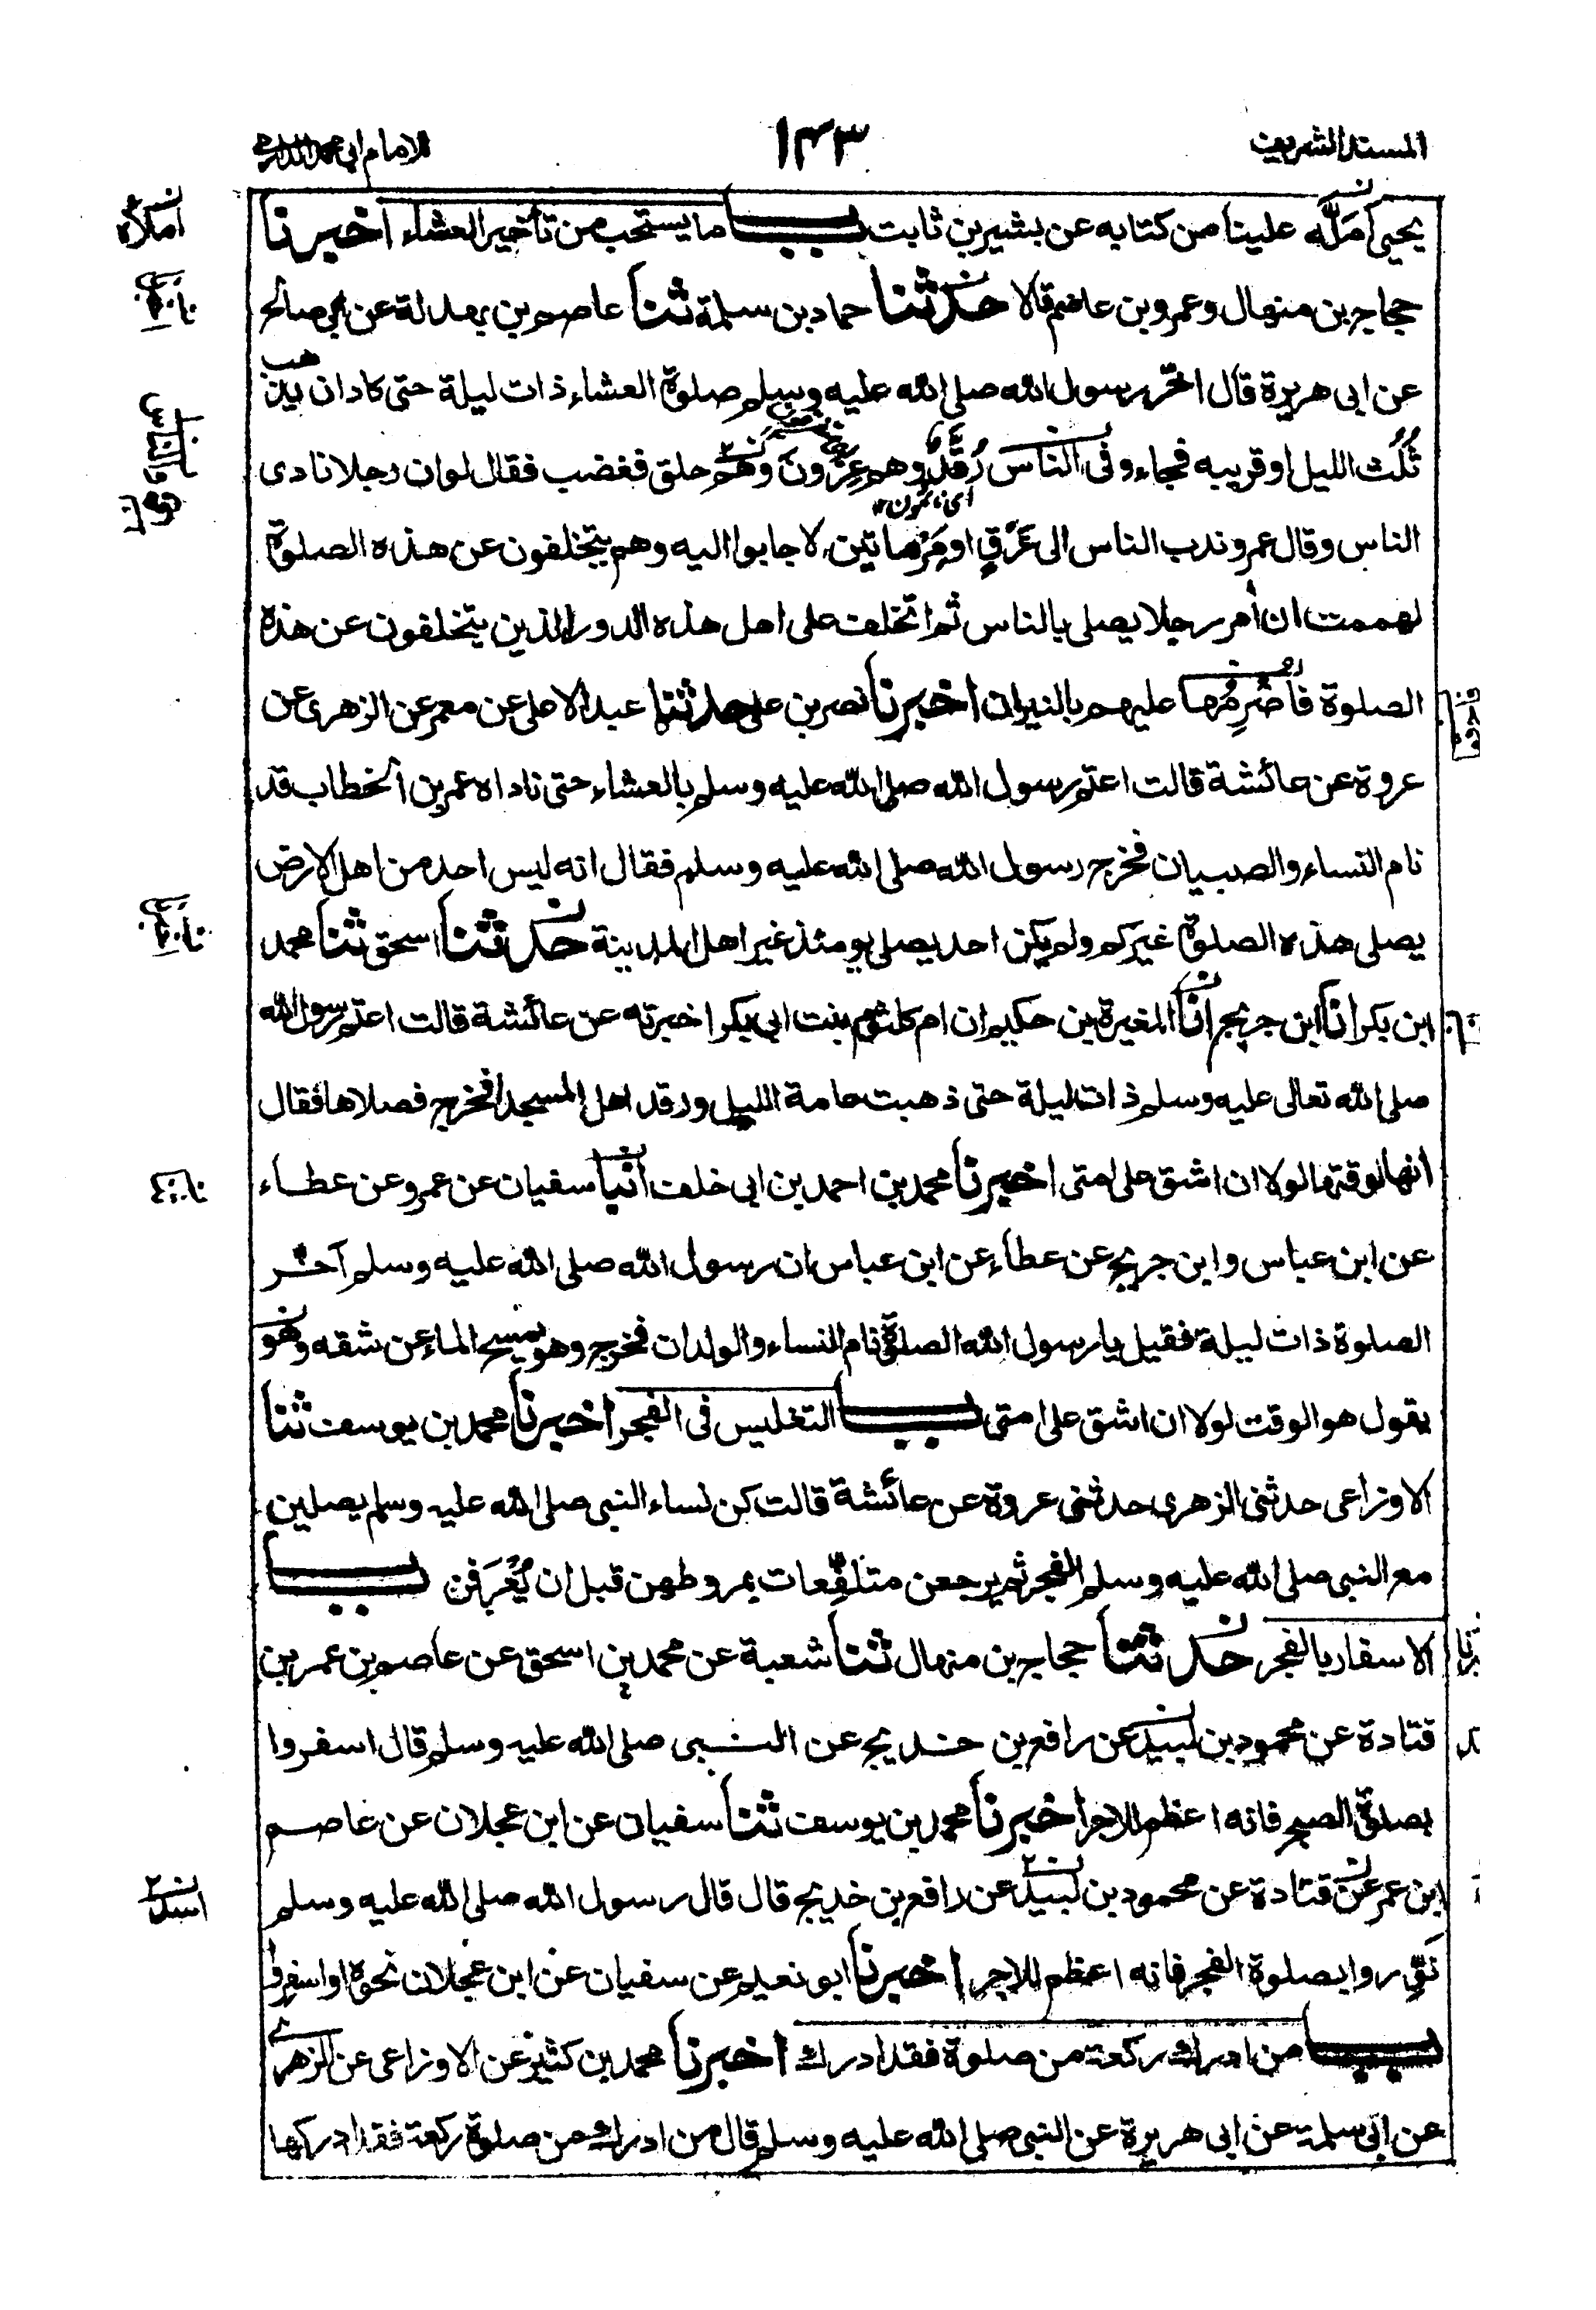 المسند الشريف ١٤٣ للامام ابي محمد الدارمي
يحيى أَمَلَّه علينا من كتابه عن بشير بن ثابت باب ما يستحب من تأخير العشاء اخبرنا
حجاج بن منهال وعمرو بن عاصم قالا حدثنا حماد بن سلمة ثنا عاصم بن بهدلة عن ابي صالح
عن ابى هريرة قال اخّر رسول الله صلى الله عليه وسلم صلوة العشاء ذات ليلة حتى كاد ان يذهب
ثُلُث الليل او قريبه فجاء وفى الناس رُقَّدٌ وهم عِزُونَ وهم حلق فغضب فقال لو ان رجلا نادى
اى نائمون ١٢
الناس وقال عمرو ندب الناس الى عَرْقٍ او مَرْماتين لاجابوا اليه وهم يتخلفون عن هذه الصلوة
لهممت ان أمر رجلا يصلى بالناس ثم اتخلف على اهل هذه الدور الذين يتخلفون عن هذه
الصلوة فأضْرِمُها عليهم بالنيران اخبرنا نصر بن على حدثنا عبد الاعلى عن معمر عن الزهرى عن
عروة عن عائشة قالت اعتم رسول الله صلى الله عليه وسلم بالعشاء حتى ناداه عمر بن الخطاب قد
نام النساء والصبيان فخرج رسول الله صلى الله عليه وسلم فقال انه ليس احد من اهل الارض
يصلى هذه الصلوة غيركم ولم يكن احد يصلى يومئذ غير اهل المدينة حدثنا اسحق ثنا محمد
ابن بكر انا ابن جريج انا المغيرة بن حكيم ان ام كلثوم بنت ابى بكر اخبرته عن عائشة قالت اعتم رسول الله
صلى الله تعالى عليه وسلم ذات ليلة حتى ذهبت عامة الليل ورقد اهل المسجد فخرج فصلاها فقال
انها لوقتها لولا ان اشق على امتى اخبرنا محمد بن احمد بن ابى خلف انبا سفيان عن عمرو عن عطاء
عن ابن عباس وابن جريج عن عطاء عن ابن عباس ان رسول الله صلى الله عليه وسلم آخر
الصلوة ذات ليلة فقيل يا رسول الله الصلوة نام النساء والولدان فخرج وهو يمسح الماء عن شقه وهو
يقول هو الوقت لولا ان اشق على امتى باب التغليس فى الفجر اخبرنا محمد بن يوسف ثنا
الاوزاعى حدثنى الزهرى حدثنى عروة عن عائشة قالت كن نساء النبى صلى الله عليه وسلم يصلين
مع النبى صلى الله عليه وسلم الفجر ثم يرجعن متلفِّعات بمروطهن قبل ان يُعْرَفن باب
الاسفار بالفجر حدثنا حجاج بن منهال ثنا شعبة عن محمد بن اسحق عن عاصم بن عمر بن
قتادة عن محمود بن لبيد عن رافع بن خديج عن النبى صلى الله عليه وسلم قال اسفروا
بصلوة الصبح فانه اعظم للاجر اخبرنا محمد بن يوسف ثنا سفيان عن ابن عجلان عن عاصم
ابن عمر عن قتادة عن محمود بن لبيد عن رافع بن خديج قال قال رسول الله صلى الله عليه وسلم
نَوِّروا بصلوة الفجر فانه اعظم للاجر اخبرنا ابو نعيم عن سفيان عن ابن عجلان نحوه او اسفروا
باب من ادرك ركعة من صلوة فقد ادرك اخبرنا محمد بن كثير عن الاوزاعى عن الزهرى
عن ابى سلمة عن ابى هريرة عن النبى صلى الله عليه وسلم قال من ادرك من صلوة ركعة فقد ادركها
املاه